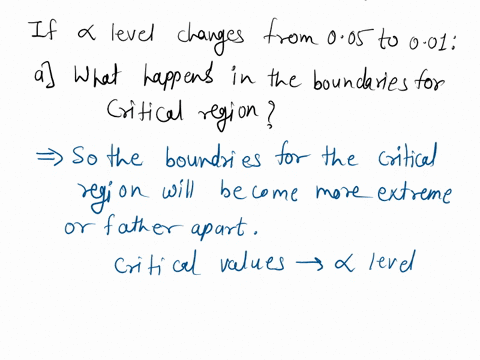 If α level changes from 0.05 to 0.01:
a] What happens in the boundaries for
Critical region?
⇒ So the boundries for the critical
region will become more extreme
or father apart.
Critical values → α level